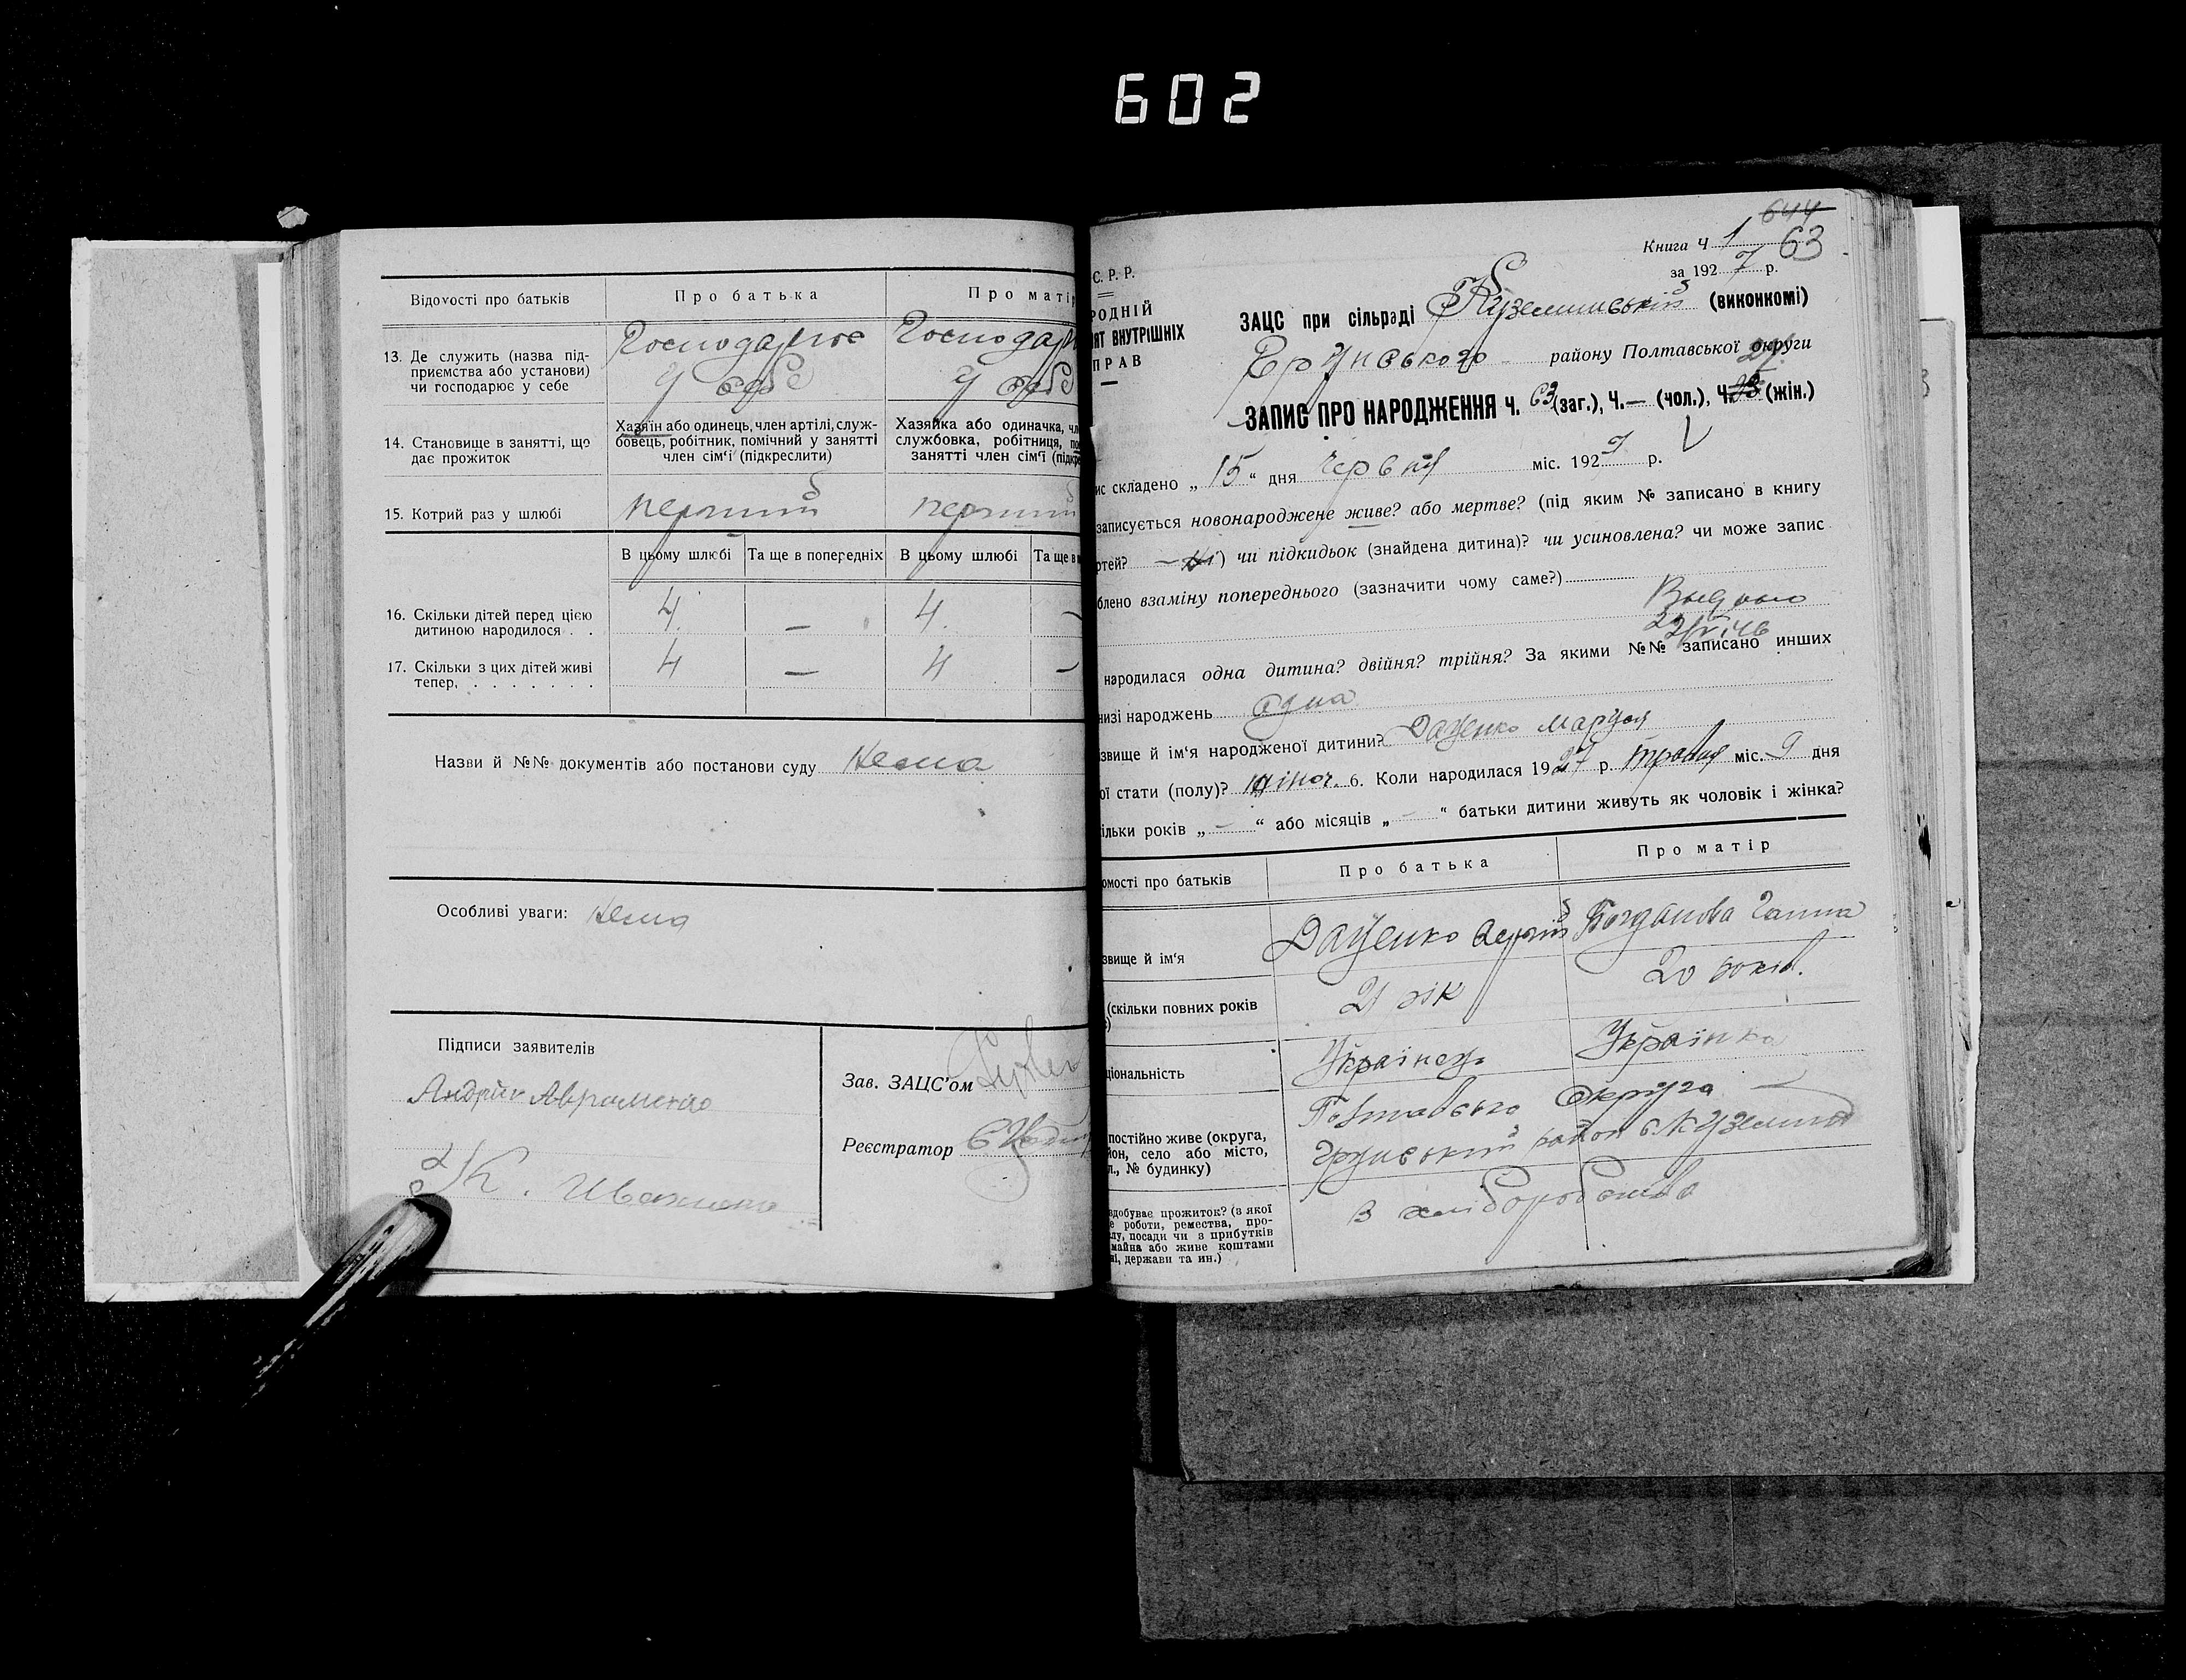 602
Відомості про батьків
Про батька
Про маті
13. Де служить (назва під-
приємства або установи)
чи господарює у себе
Господарює
у себе
Господарю
у себе
14. Становище в занятті, що
дає прожиток
Хазяїн або одинець, член артілі, служ-
бовець, робітник, помічний у занятті
член сім'ї (підкреслити)
Хазяйка або одиначка, чл
службовка, робітниця, по
занятті член сім'ї (підкре
15. Котрий раз у шлюбі
перший
перший
В цьому шлюбі
Та ще в попередніх
В цьому шлюбі
Та ще в
16. Скільки дітей перед цією
дитиною народилося . .
4
—
4
17. Скільки з цих дітей живі
тепер. . . . . . . .
4
—
4
Назви й №№ документів або постанови суду Нема
Особливі уваги: Нема
Підписи заявителів
Андрій Авраменко
К. Іваненко
Зав. ЗАЦС'ом
Реєстратор
644
Книга Ч 1 63
за 1927 р.
С. Р. Р.
РОДНІЙ
ЯТ ВНУТРІШНІХ
ПРАВ
ЗАЦС при сільраді Куземинській (виконкомі)
Грунського району Полтавської округи
27
ЗАПИС ПРО НАРОДЖЕННЯ ч. 63 (заг.), Ч. — (чол.), Ч. 28 (жін.)
ис складено „15“ дня червня міс. 1927 р.
записується новонароджене живе? або мертве? (під яким № записано в книгу
ртей? — ) чи підкидьок (знайдена дитина)? чи усиновлена? чи може запис
блено взаміну попереднього (зазначити чому саме?)
народилася одна дитина? двійня? трійня? За якими №№ записано инших
низі народжень одна
звище й ім'я народженої дитини? Даценко Маруся
ої стати (полу)? жіноч. 6. Коли народилася 1927 р. травня міс. 9 дня
ільки років „—“ або місяців „—“ батьки дитини живуть як чоловік і жінка?
омості про батьків
Про батька
Про матір
звище й ім'я
Даценко Сергій
Богданова Ганна
(скільки повних років
21 рік
20 років.
ціональність
Українець
Українка
постійно живе (округа,
йон, село або місто,
л., № будинку)
Полтавська Округа
Грунський район с. Куземин
здобуває прожиток? (з якої
е роботи, ремества, про-
лу, посади чи з прибутків
майна або живе коштами
ні, держави та ин.)
В хліборобства